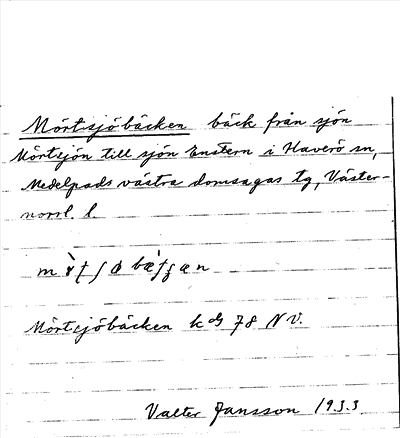 Mörtsjöbäcken bäck från sjön
Mörtsjön till sjön Enstern i Haverö sn,
Medelpads västra domsagas tg, Väster-
norrl. l.
Mörtsjöbäcken k bl 78 NV.
Valter Jansson 1933